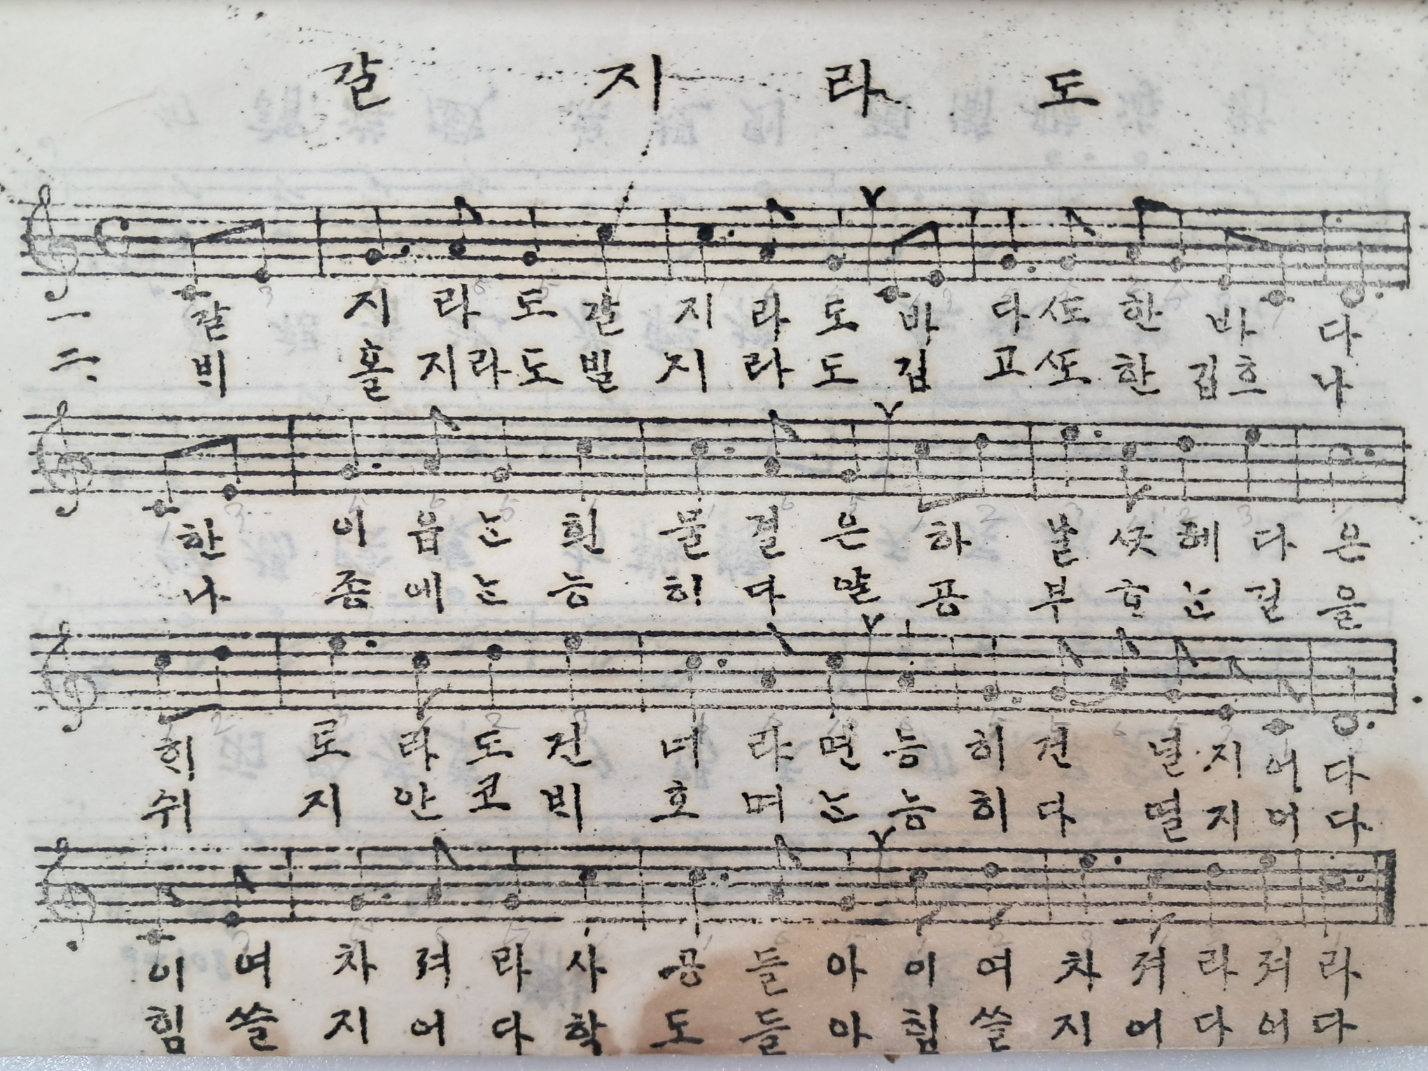 갈 지 라 도
一 갈 지 라 도 갈 지 라 도 바 다 ᄯᅩ 한 바 다
二 비 홀 지 라 도 빌 지 라 도 깁 고 ᄯᅩ 한 깁 흐 나
한 이 읍 는 흰 물 결 은 하 날 ᄭᅳᆺ 헤 다 은
나 죵 에 는 능 히 다 말 공 부 ᄒᆞ 는 길 을
히 로 라 도 건 너 라 면 능 히 건 널 지 어 다
쉬 지 안 코 비 호 며 는 능 히 다 떨 지 어 다
이 여 차 려 라 사 공 들 아 이 여 차 려 라 려 라
힘 쓸 지 어 다 학 도 들 아 힘 쓸 지 어 다 어 다